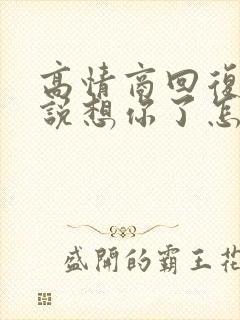 高情商回復
說想你了怎
盛開的霸王花